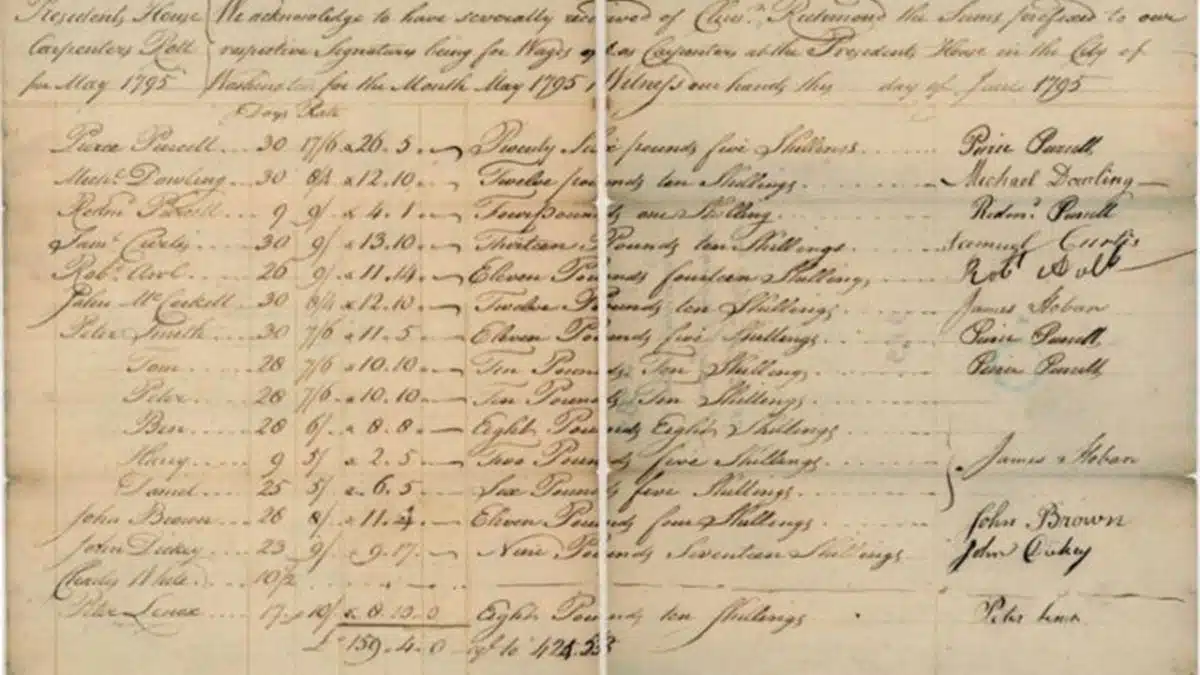 Presidents House We acknowledge to have severally received of Clemt. Redmond the Sums prefixed to our
Carpenters Roll respective Signatures being for Wages as Carpenters at the Presidents House in the City of
for May 1795 Washington for the Month May 1795 Witness our hands this day of June 1795
Days Rate
Pierce Purcell 30 17/6 26.5 Twenty Six pounds five Shillings Peirce Purcell
Michl. Dowling 30 8/4 12.10 Twelve pounds ten Shillings Michael Dowling
Redmd. Purcell 9 9/ 4.1 Four pounds one Shilling Redmd. Purcell
Saml. Curtis 30 9/ 13.10 Thirteen Pounds ten Shillings Samuel Curtis
Robt. 26 9/ 11.14 Eleven Pounds fourteen Shilling Robt
John McCorkell 30 8/4 12.10 Twelve Pounds ten Shillings James Hoban
Peter Smith 30 7/6 11.5 Eleven Pounds five Shillings Peirce Purcell
Tom 28 7/6 10.10 Ten Pounds Ten Shilling Peirce Purcell
Peter 28 7/6 10.10 Ten Pounds Ten Shillings
Ben 28 6/ 8.8 Eight Pounds Eight Shillings
Harry 9 5/ 2.5 Two Pounds five Shillings James Hoban
Daniel 25 5/ 6.5 Six Pounds five Shillings
John Brown 28 8/ 11.4 Eleven Pounds four Shillings John Brown
John Dickey 23 9/ 9.17 Nine Pounds Seventeen Shillings John Dickey
Charles 10/2
Peter Lenox 17 10/ 8.10.0 Eight Pounds ten Shillings Peter Lenox
£159.4.0 to 424.53